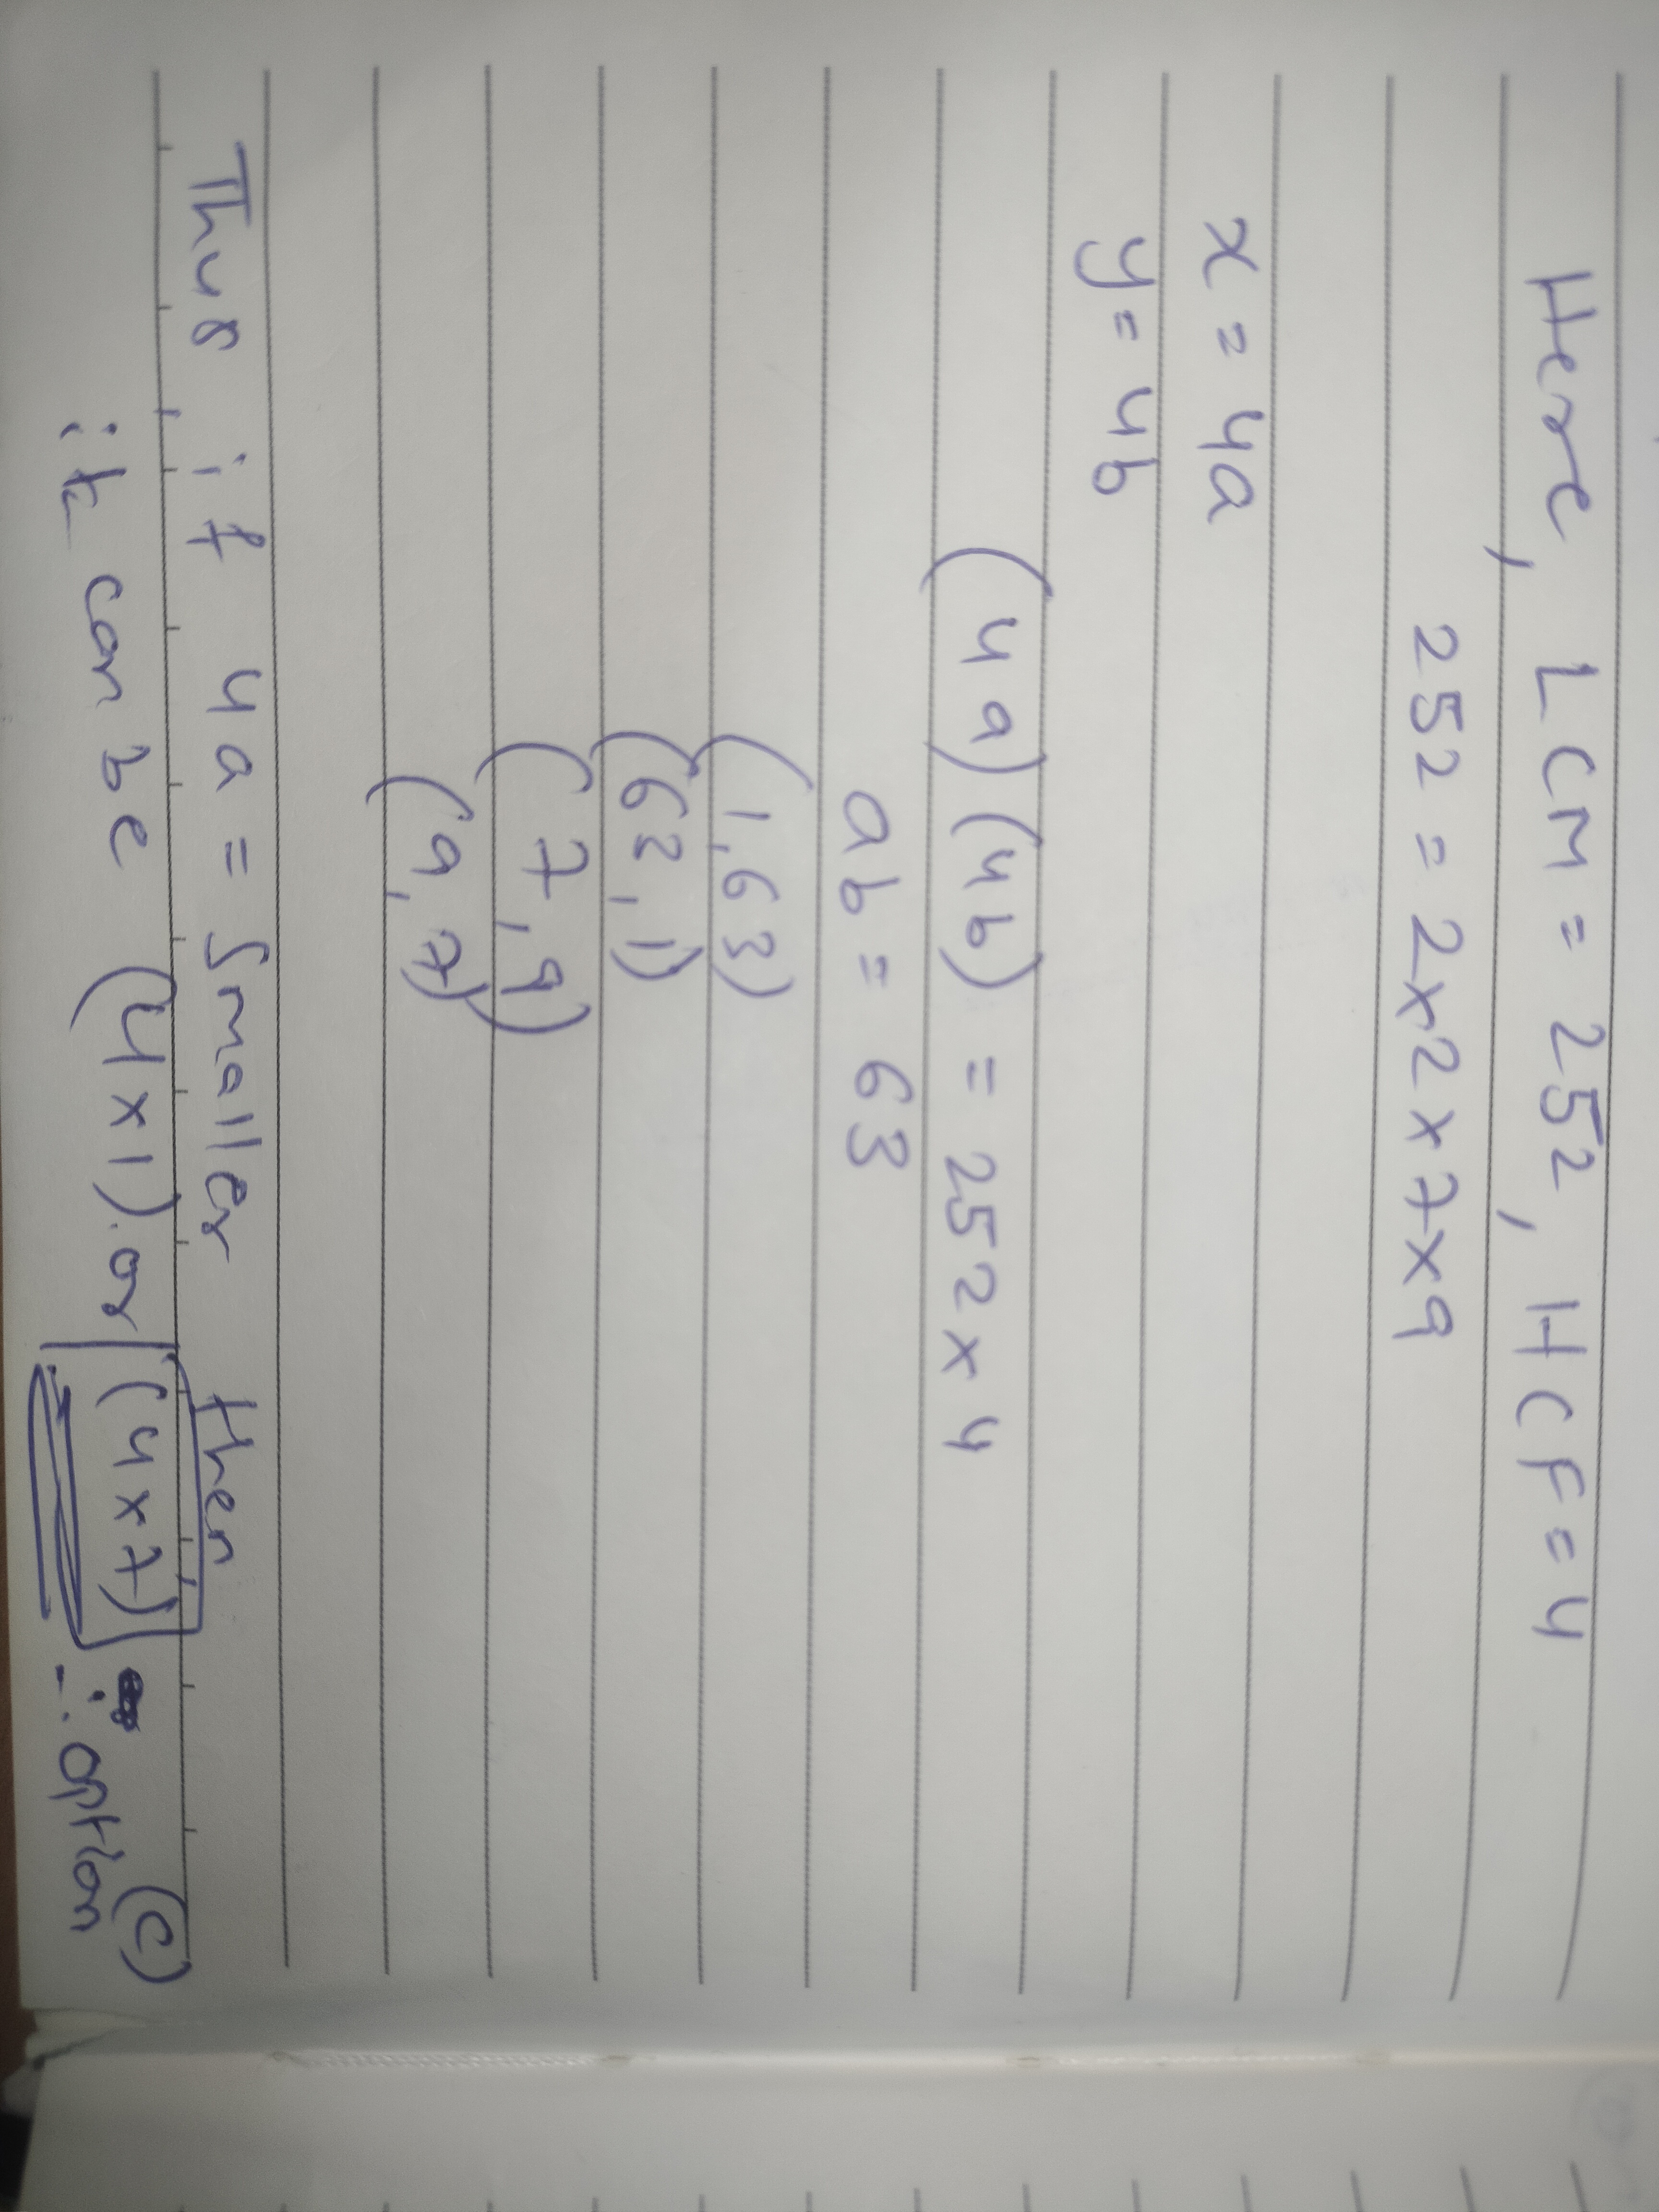 Here, LCM = 252, HCF = 4
252 = 2x2 x 7x9
x = 4a
y = 4b
(4a)(4b) = 252 x 4
ab = 63
(1,63)
(63,1)
(7,9)
(9,7)
Thus, if 4a = smaller then,
it can be (4x1). or (4x7) ∴ option (c)